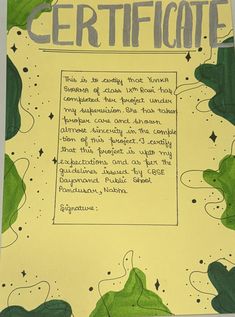 CERTIFICATE
This is to certify that
SHARMA of class IXth has
completed her project under
my supervision. She has taken
proper care and shown
almost sincerity in the comple
tion of this project. I certify
that this project is upto my
expectations and as per the
guidelines issued by CBSE
Dayanand Public School
Nabha
Signature: